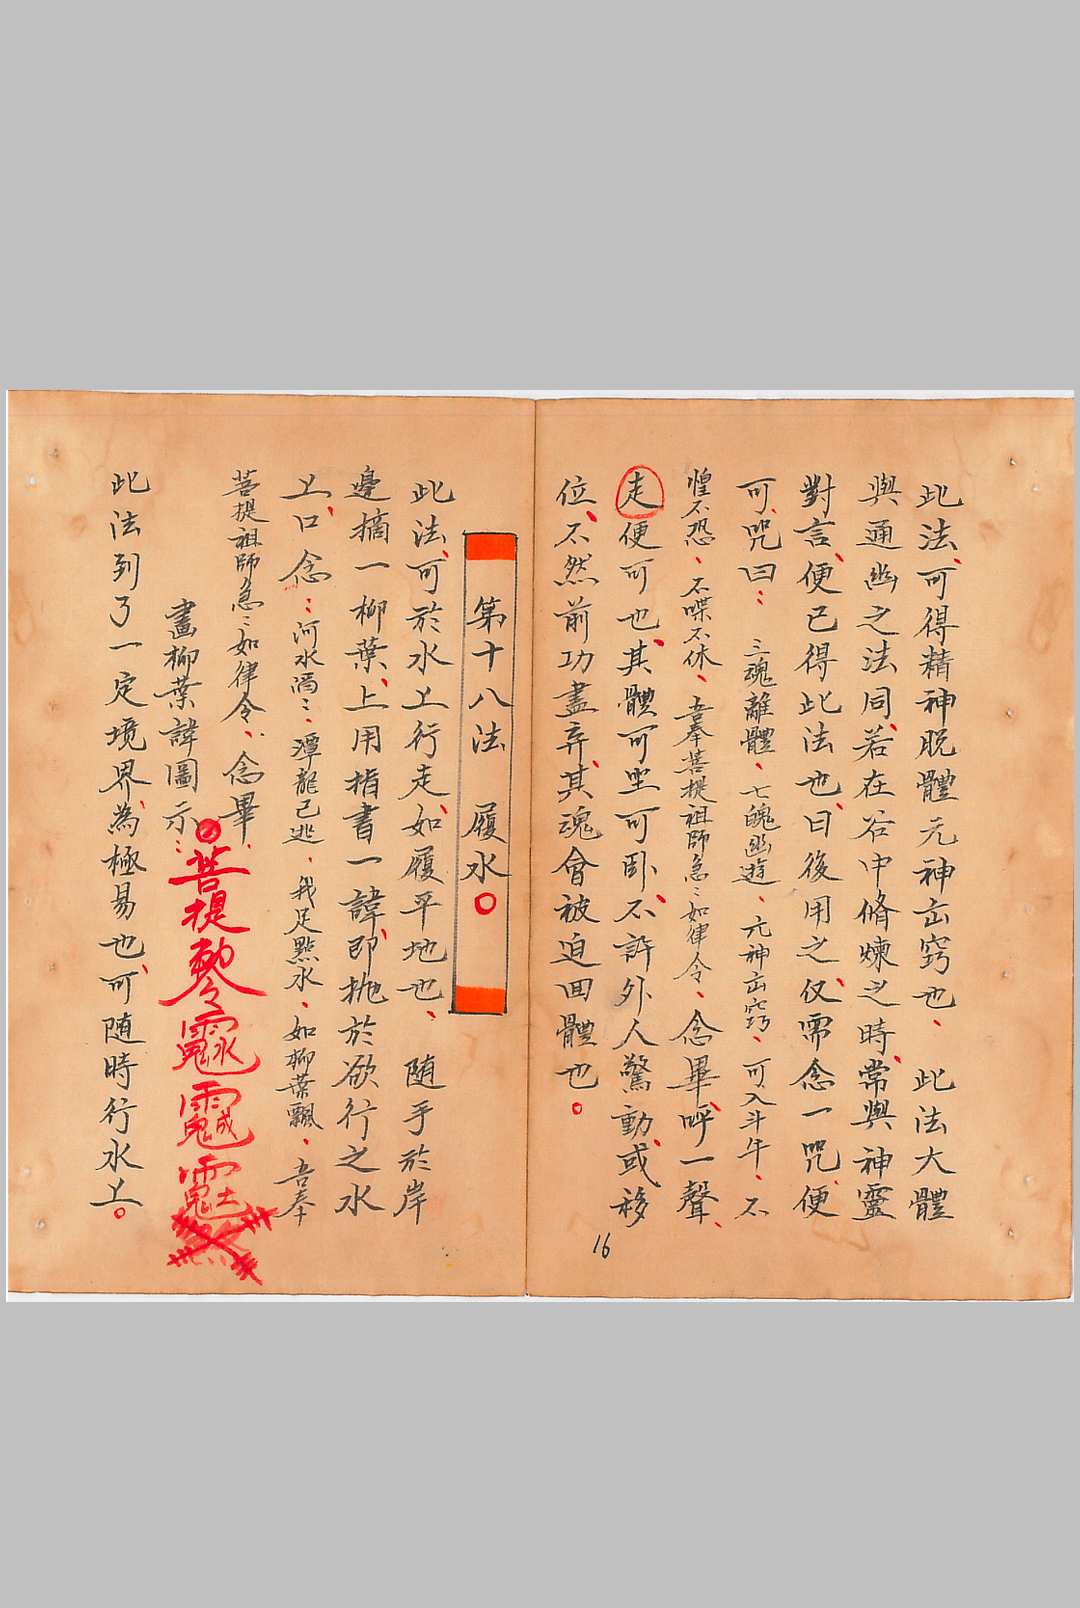 此法、可得精神脫體元神出窍也、此法大體
與通幽之法同、若在谷中脩煉之時、常與神靈
對言、便已得此法也、日後用之、仅需念一咒、便
可、咒曰：三魂離體、七魄幽遊、元神出窍、可入斗牛、不
惶不恐、不喋不休、吾奉菩提祖師急：如律令、念畢、呼一聲、
走便可也、其體可坐可卧、不許外人驚動、或移
位、不然前功盡弃、其魂會被迫回體也。
16
第十八法 履水。
此法、可於水上行走、如履平地也、随手於岸
邊摘一柳葉、上用指書一諱、即抛於欲行之水
上、口念：河水滔：、潭龍已逃、我足點水、如柳葉飄、吾奉
菩提祖師急：如律令、念畢、
畫柳葉諱圖示：
菩提勅令
此法到了一定境界、為極易也、可随時行水上。